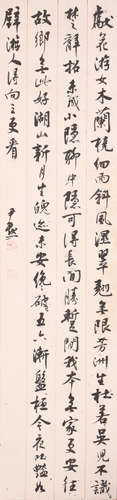 獻花游女木蘭橈細雨斜風濕翠翹無限芳洲生杜若吳兒不識
楚辭招未成小隱聊中隱可得長閒勝暫閒我本無家更安往
故鄉無此好湖山新月生魄迹未安纔破五六漸盤桓今夜吐艷如
半璧游人得向三更看
尹默